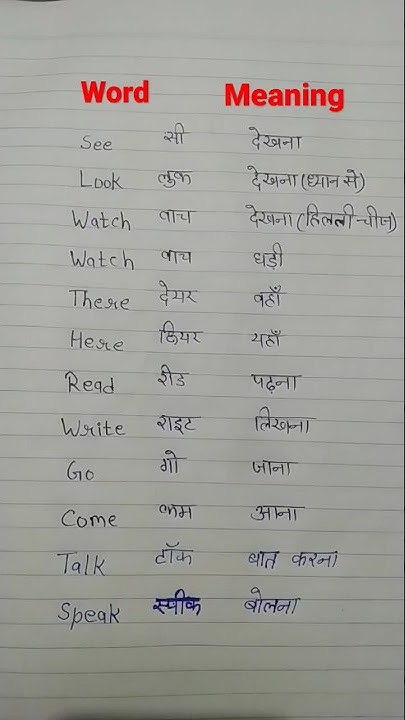 Word Meaning
See सी देखना
Look लुक देखना (ध्यान से)
Watch वाच देखना (हिलती चीज)
Watch वाच घड़ी
There देयर वहाँ
Here हियर यहाँ
Read रीड पढ़ना
Write राइट लिखना
Go गो जाना
Come कम आना
Talk टॉक बात करना
Speak स्पीक बोलना